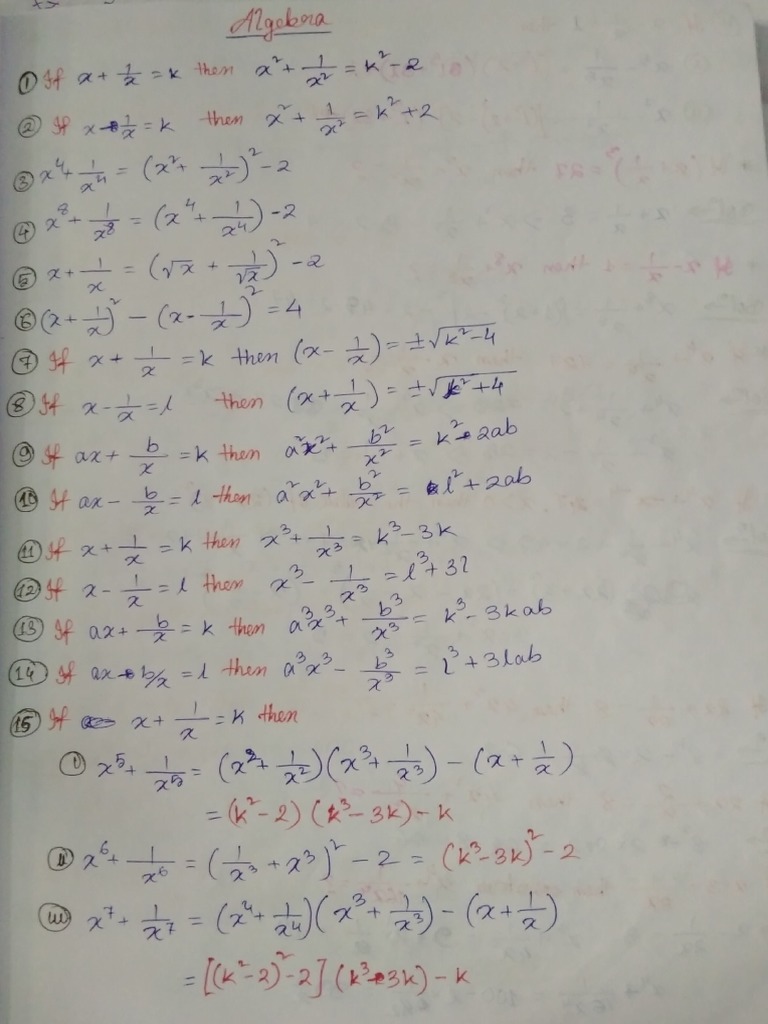 Algebra
① If x + 1/x = k then x² + 1/x² = k² - 2
② If x - 1/x = k then x² + 1/x² = k² + 2
③ x⁴ + 1/x⁴ = (x² + 1/x²)² - 2
④ x⁸ + 1/x⁸ = (x⁴ + 1/x⁴) - 2
⑤ x + 1/x = (√x + 1/√x)² - 2
⑥ (x + 1/x)² - (x - 1/x)² = 4
⑦ If x + 1/x = k then (x - 1/x) = ±√(k² - 4)
⑧ If x - 1/x = l then (x + 1/x) = ±√(k² + 4)
⑨ If ax + b/x = k then a²x² + b²/x² = k² - 2ab
⑩ If ax - b/x = l then a²x² + b²/x² = l² + 2ab
⑪ If x + 1/x = k then x³ + 1/x³ = k³ - 3k
⑫ If x - 1/x = l then x³ - 1/x³ = l³ + 3l
⑬ If ax + b/x = k then a³x³ + b³/x³ = k³ - 3kab
⑭ If ax - b/x = l then a³x³ - b³/x³ = l³ + 3lab
⑮ If x + 1/x = k then
ⓘ x⁵ + 1/x⁵ = (x² + 1/x²)(x³ + 1/x³) - (x + 1/x)
= (k² - 2) (k³ - 3k) - k
ii x⁶ + 1/x⁶ = (1/x³ + x³)² - 2 = (k³ - 3k)² - 2
iii x⁷ + 1/x⁷ = (x⁴ + 1/x⁴)(x³ + 1/x³) - (x + 1/x)
= [(k² - 2)² - 2] (k³ - 3k) - k